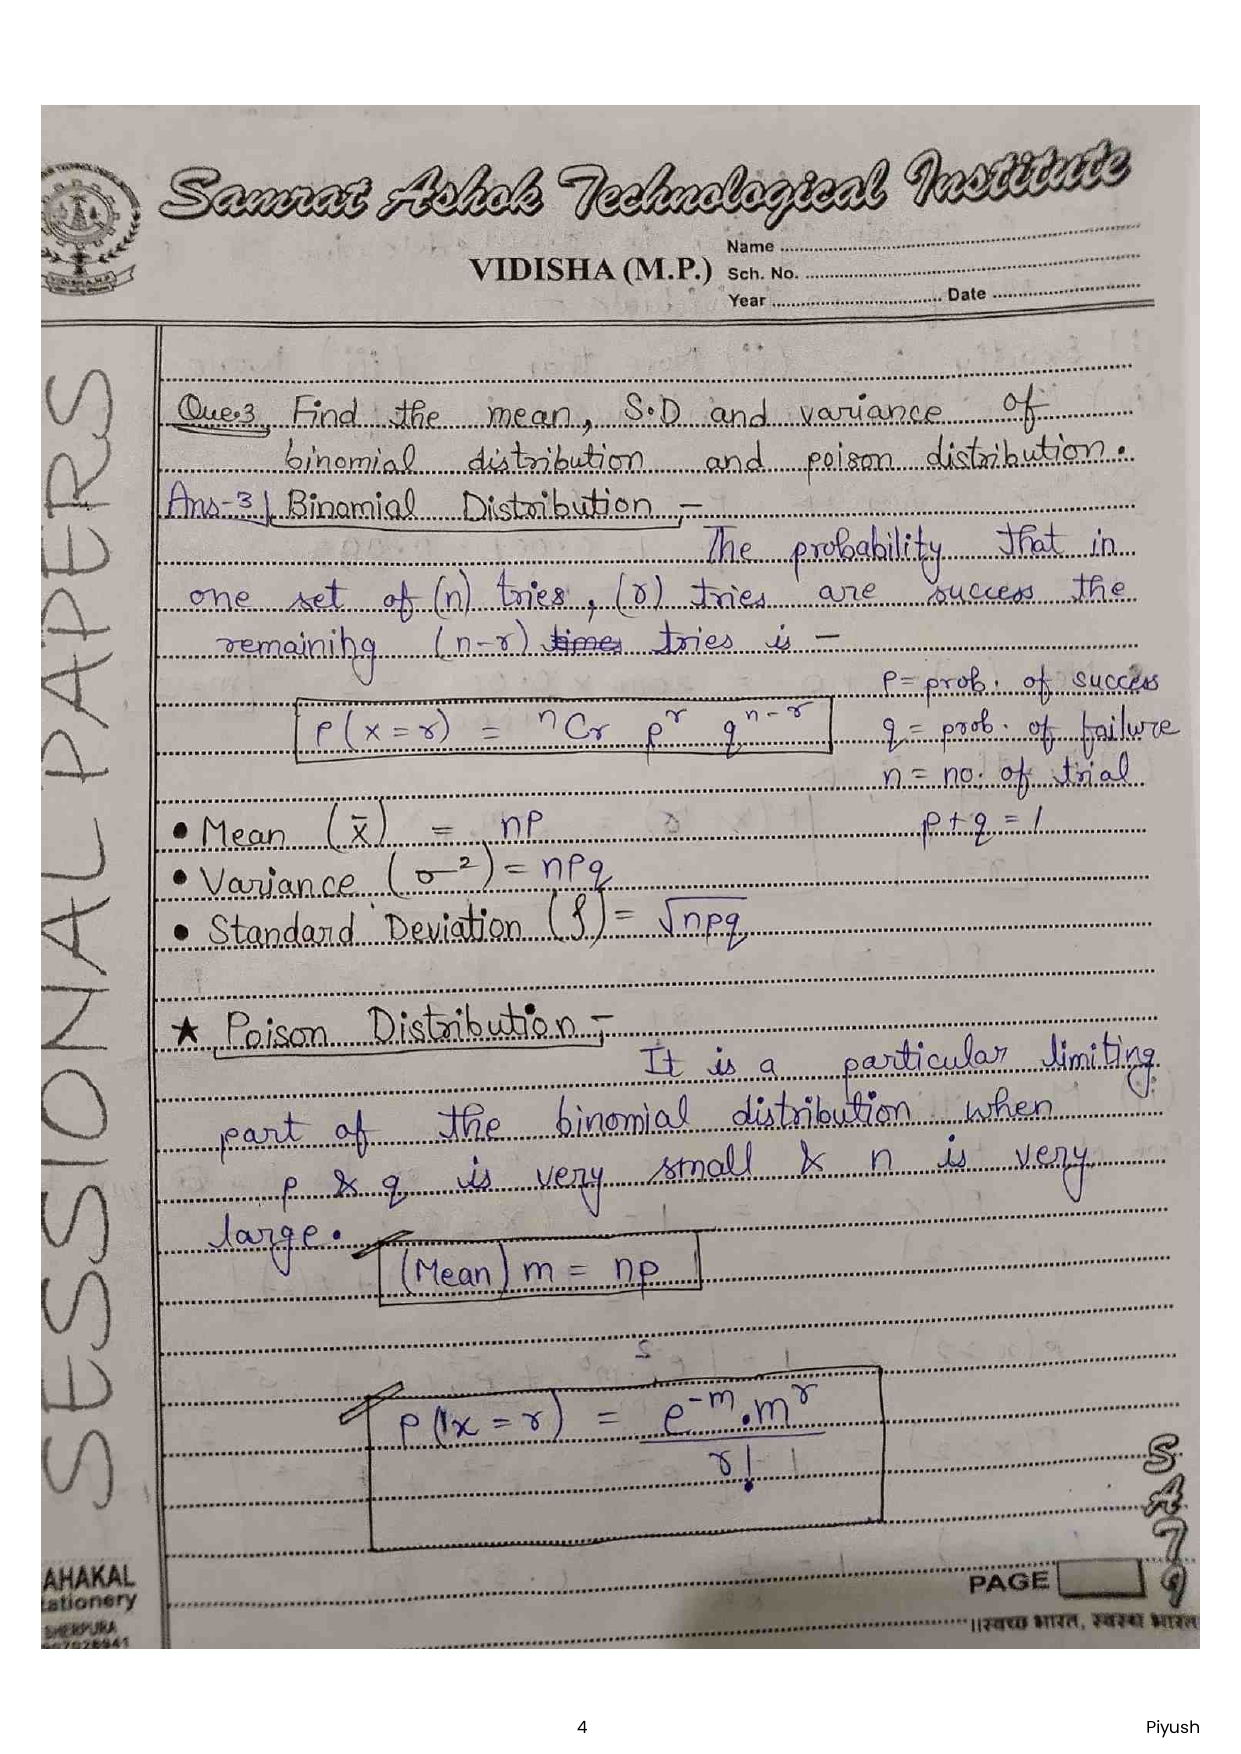 Samrat Ashok Technological Institute
VIDISHA (M.P.)
Name
Sch. No.
Year Date
SESSIONAL PAPERS
Que.3 Find the mean, S.D and variance of
binomial distribution and poison distribution.
Ans-3 Binomial Distribution :-
The probability that in
one set of (n) tries, (r) tries are success the
remaining (n-r) times tries is -
P = prob. of success
P(x=r) = ⁿCr pʳ qⁿ⁻ʳ
q = prob. of failure
n = no. of trial
• Mean (x̄) = np
p+q = 1
• Variance (σ²) = npq
• Standard Deviation (ρ) = √npq
★ Poison Distribution :-
It is a particular limiting
part of the binomial distribution when
p & q is very small & n is very
large.
(Mean) m = np
P(x=r) = e⁻ᵐ.mʳ / r!
SATI
PAGE
AHAKAL
tationery
SHERPURA
।।स्वच्छ भारत, स्वस्थ भारत
4
Piyush